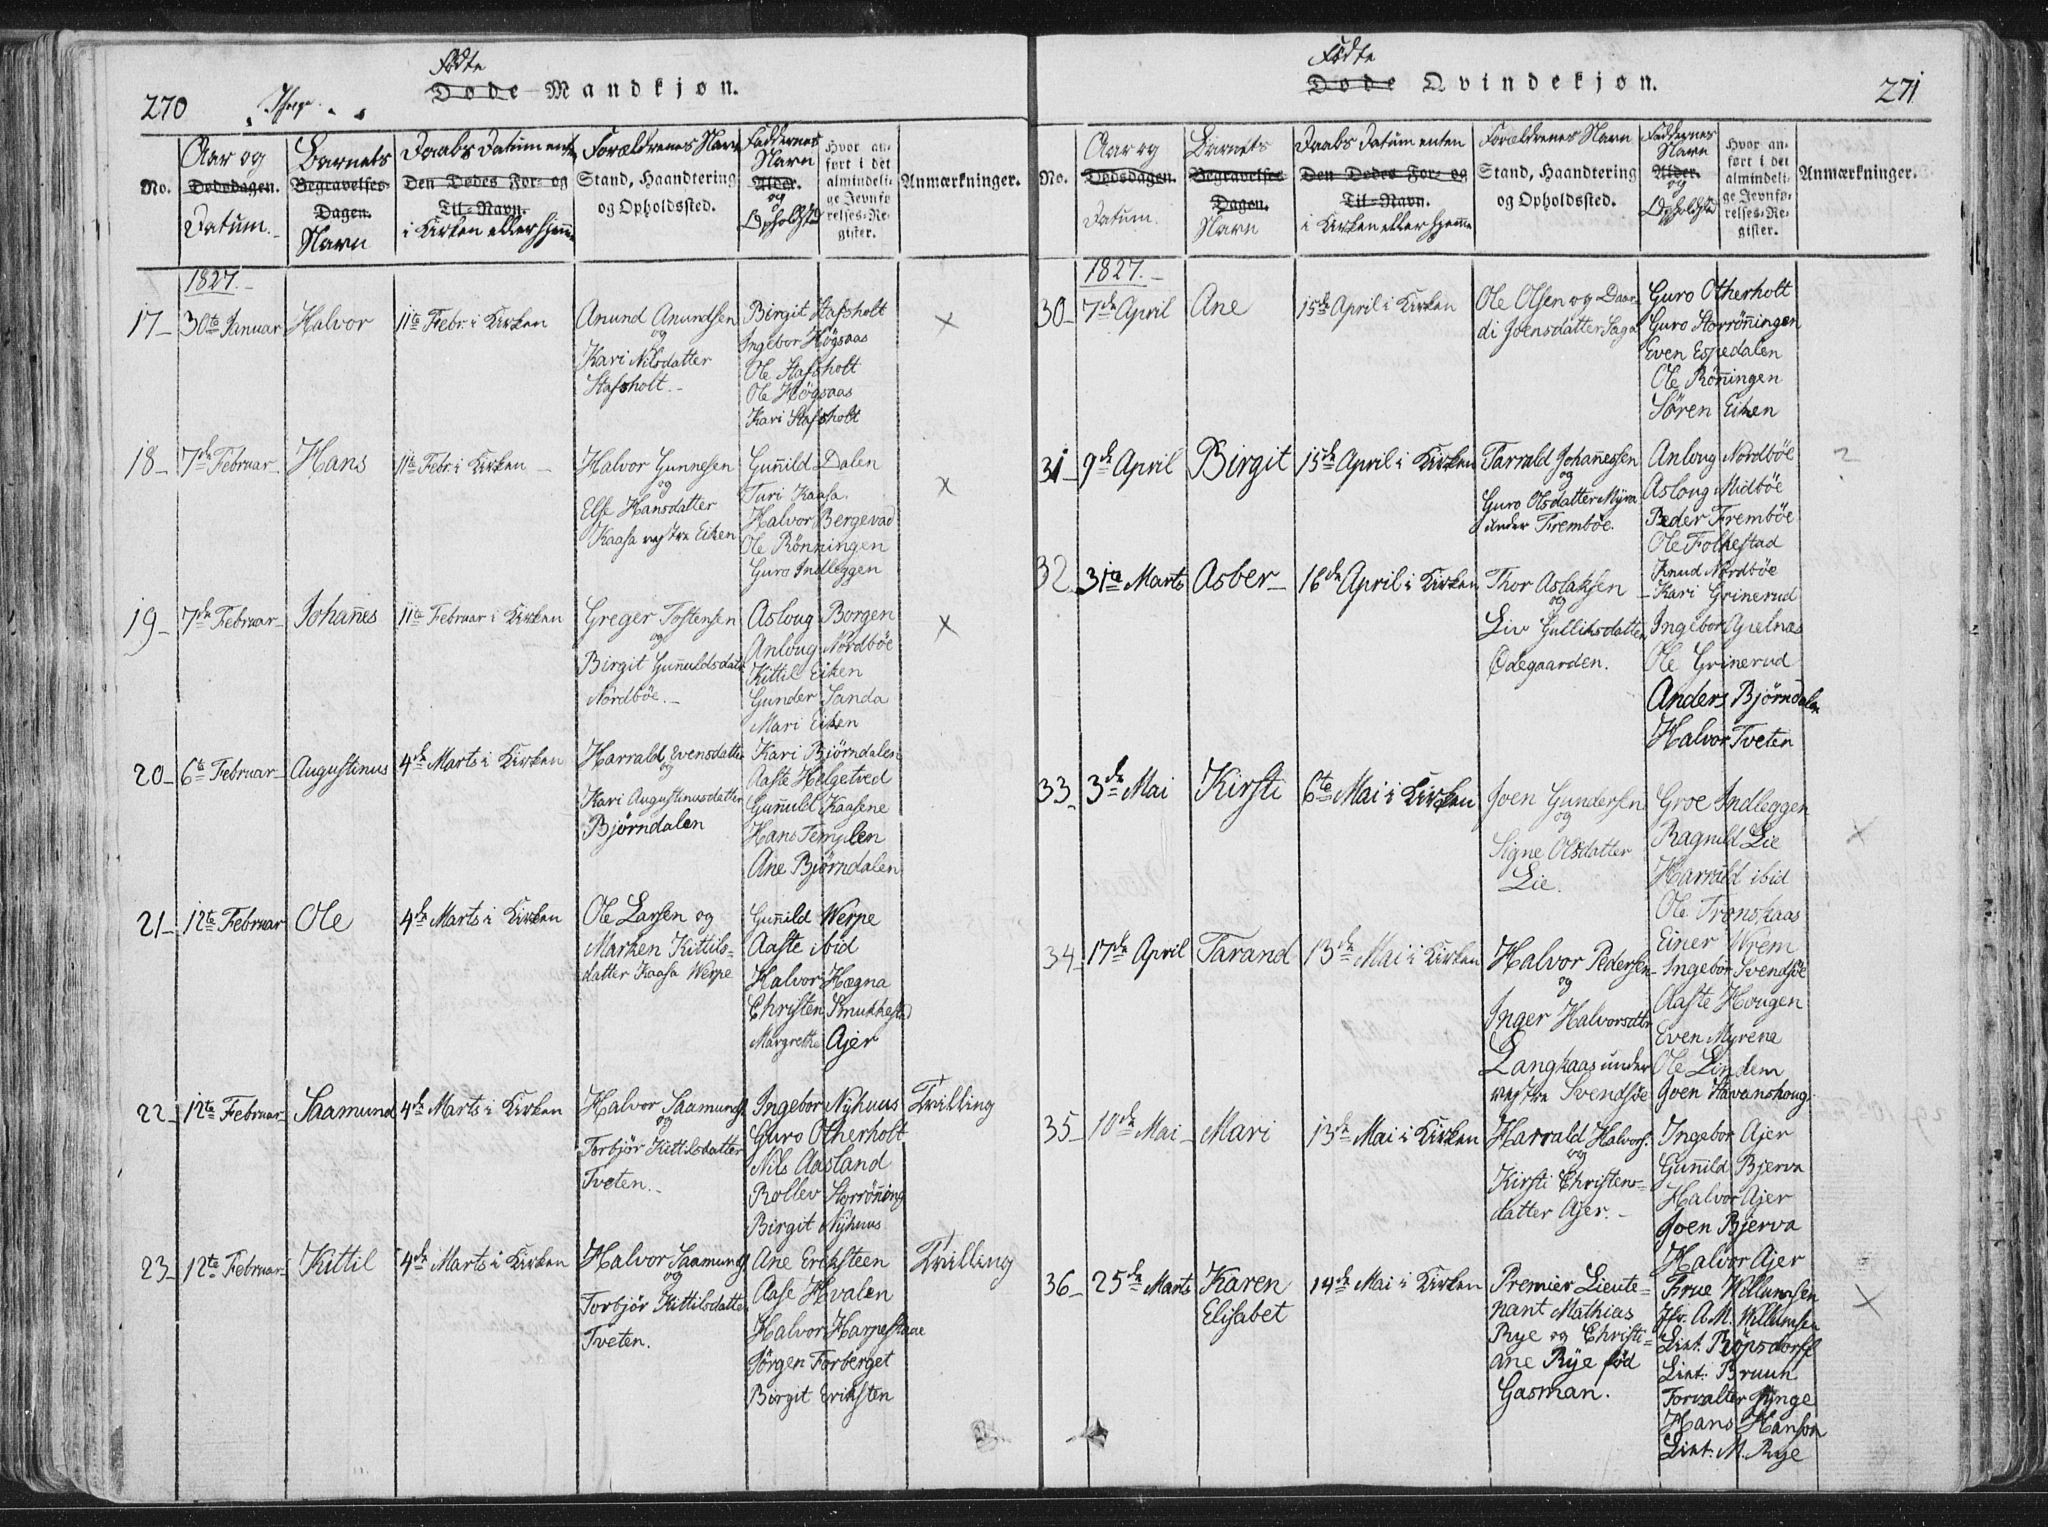 270
Födte
Døde Mandkjøn.
No.
Aar og
Dødsdagen.
Datum.
Barnets
Begravelses-
Dagen.
Navn
Daabs Datum enten
Den Dødes For- og
Til-Navn.
i Kirken eller hjemme
Forældrenes Navn
Stand, Haandtering
og Opholdssted.
Faddernes
Navn
Alder.
og
Opholdsted
Hvor an-
ført i det
almindeli-
ge Jevnfø-
relses-Re-
gister.
Anmærkninger.
1827.
17 30te Januar Halvor 11te Febr. i Kirken
Anund Anundsen
og
Kari Nilsdatter
Stafsholt.
Birgit Stafsholt
Ingebor Högsaas
Ole Stafsholt
Ole Högsaas
Kari Stafsholt
×
18 7de Februar Hans 11te Febr. i Kirken
Halvor Gunnesen
og
Else Hansdatter
Kaasa vestre Eiken
Guñild Dalen
Turi Kaasa.
Halvor Bergevad
Ole Rönningen
Guro Indleggen
×
19 7de Februar Johañes 11te Februar i Kirken
Greger Tostensen
og
Birgit Guñuldsdatr
Nordböe.
Asloug Borgen
Anloug Nordböe
Kittil Eiken
Gunder Sanda
Mari Eiken
×
20 6te Februar Augustinus 4de Marts i Kirken
Harrald Evensdatter
og
Kari Augustinusdatter
Björndalen
Kari Björndalen
Aaste Helgetved
Guñuld Kaasene
Hans Templen
Ane Björndalen
21 12te Februar Ole 4de Marts i Kirken
Ole Larsen og
Marken Kittils-
datter Kaasa Werpe
Guñild Werpe
Aaste ibid
Halvor Hægna
Christen Smukkestad
Margrethe Ajer
22 12te Februar Saamund 4de Marts i Kirken
Halvor Saamunds.
og
Torbjør Kittilsdatter
Tveten.
Ingebor Nyhuus
Guro Otherholt
Nils Aasland
Rollev Storröning
Birgit Nyhuus
Trilling
23 12te Februar Kittil 4de Marts i Kirken
Halvor Saamunds
og
Torbjør Kittilsdatter
Tveten.
Ane Eriksteen
Aase Hvalen
Halvor Harpestaae
Jörgen Forberget
Birgit Eriksten
Trilling
271
Födte
Døde Qvindekjøn.
No.
Aar og
Dødsdagen.
Datum.
Barnets
Begravelses
Dagen.
Navn
Daabs Datum enten
Den Dødes For- og
Til-Navn.
i Kirken eller hjemme
Forældrenes Navn
Stand, Haandtering
og Opholdssted.
Faddernes
Navn
Alder.
og
Opholdsted
Hvor an-
ført i det
almindeli-
ge Jevnfø-
relses-Re-
gister.
Anmærkninger.
1827.
30 7de April Ane 15de April i Kirken
Ole Olsen og Daar-
di Joensdatter Saga
Guro Otherholt
Guro Storröningen
Even Espedalen
Ole Röñingen
Sören Eiken
31 9de April Birgit 15de April i Kirken
Tarrald Johañessen
og
Guro Olsdatter Myra
under Fremböe.
Anloug Nordböe
Asloug Midböe
Peder Fremböe
Ole Folkestad
Knud Nordböe
?
32 31te Marts Asber 16de April i Kirken
Thor Aslaksen
og
Liv Gulliksdatter
Ödegaarden.
Kari Grinerud
Ingebor Gjelnæs
Ole Grinerud
Anders Björndalen
Halvor Tveten
33 3de Mai Kirsti 6te Mai i Kirken
Joen Gundersen
og
Signe Olsdatter
Lie.
Groe Indleggen
Ragnild Lie
Harrald ibid
Ole Tronskaas
Einer Wrem
×
34 17de April Tarand 13de Mai i Kirken
Halvor Pedersen
og
Inger Halvorsdtr
Langkaas under
vestre Svendsöe
Ingebor Svendsöe
Aaste Hougen
Even Myrene
Ole Lindem
Joen Havanshoug
35 10de Mai Mari 13de Mai i Kirken
Harrald Halvors.
og
Kirsti Christens-
datter Ajer.
Ingebor Ajer
Guñild Bjerva
Halvor Ajer
Joen Bjerva
Halvor Ajer
36 25de Marts Karen
Elisabet
14de Mai i Kirken
Premier Lieute-
nant Mathias
Rye og Christi-
ane Rye föd
Gasman.
Frue Willumsen
Jfr. A. M. Willumsen
Lint. Röpsdorff
Lint. Bruun
Forvalter Ringe
Hans Hanson
Lint. M. Rye
×